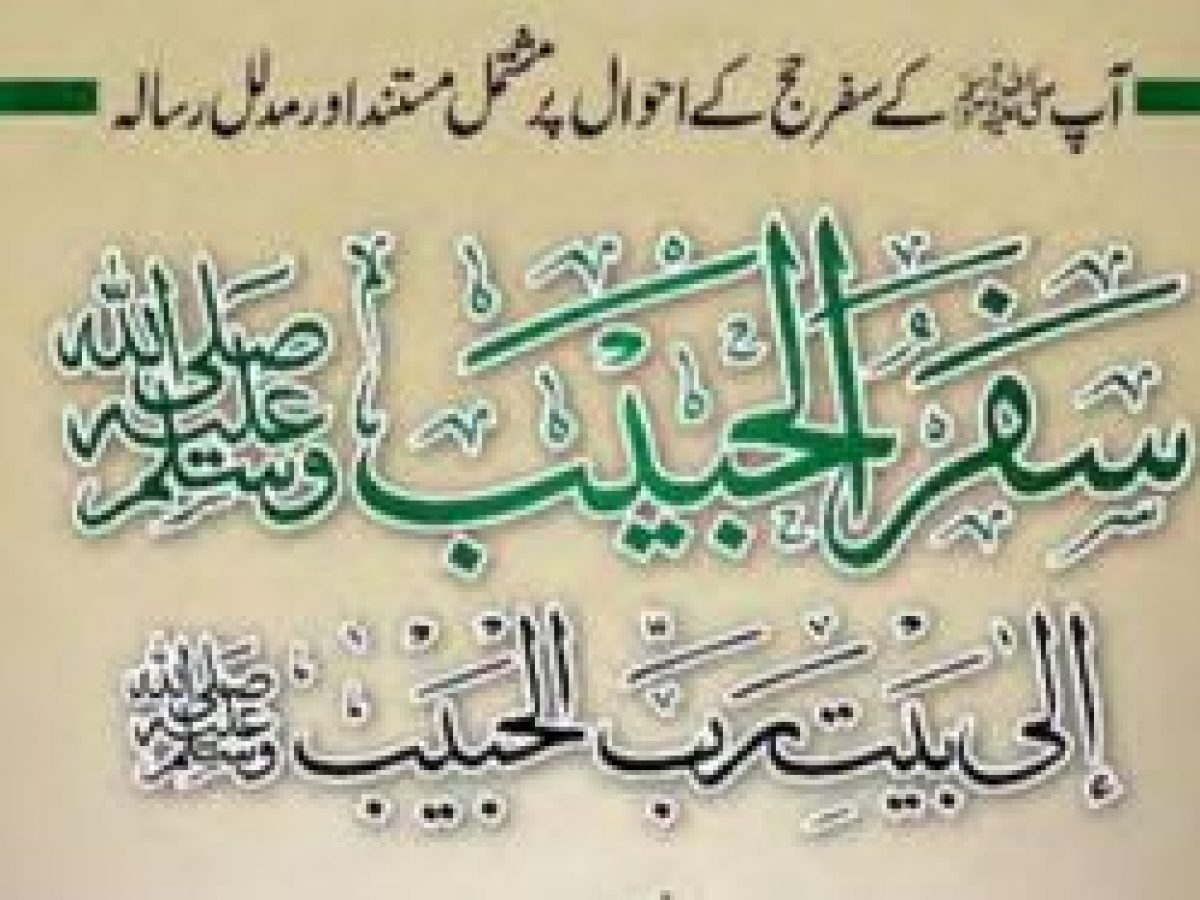 آپ ﷺ کے سفر حج کے احوال پر مشتمل مستند اور مدلل رسالہ
سَفَرُ الْحَبِيْبِ صَلَّى اللهُ عَلَيْهِ وَسَلَّمَ
إِلىٰ بَيْتِ رَبِّ الْحَبِيْبِ صَلَّى اللهُ عَلَيْهِ وَسَلَّمَ